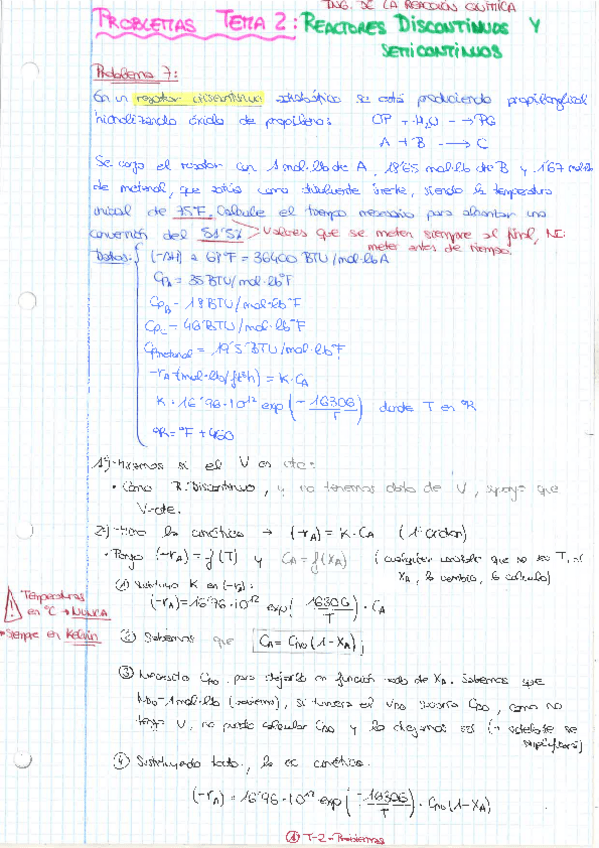 ING. DE LA REACCIÓN QUÍMICA
PROBLEMAS TEMA 2: REACTORES DISCONTINUOS Y
SEMICONTINUOS
Problema 7:
En un reactor discontinuo adiabático se está produciendo propilenglicol
hidrolizando óxido de propileno: OP + H2O → PG
A + B → C
Se carga el reactor con 1 mol·lb de A, 18'65 mol·lb de B y 1'67 mol·lb
de metanol, que actúa como diluyente inerte, siendo la temperatura
inicial de 75ºF. Calcule el tiempo necesario para alcanzar una
conversión del 51'5% > Valores que se meten siempre al final, NE:
meter antes de tiempo.
Datos: (-ΔH) a 68ºF = 36400 BTU/mol·lb A
CpA = 35 BTU/mol·lbºF
CpB = 18 BTU/mol·lbºF
CpC = 46 BTU/mol·lbºF
Cpmetanol = 19'5 BTU/mol·lbºF
-rA (mol·lb/ft³h) = K·CA
K = 16'96·10^12 exp(-16306/T) donde T en ºR
ºR = ºF + 460
1º) Miramos si el V es cte:
• Como R. Discontinuo, y no tenemos dato de V, supongo que
V=cte.
2º) Miro la cinética → (-rA) = K·CA (1º orden)
• Pongo (-rA) = f(T) y CA = f(XA) (cualquier variable que no sea T, ni
XA, la cambio, la calculo)
① Sustituyo K en (-rA):
(-rA) = 16'96·10^12 exp(16306/T)·CA
Temperaturas
en ºC → NUNCA
• Siempre en Kelvin
② Sabemos que CA = CA0(1-XA),
③ Necesito CA0 para dejarlo en función solo de XA. Sabemos que
NA0 = 1 mol·lb (reactivo), si tuviera el V no CA0, como no
tengo V, no puedo calcular CA0 y lo dejamos así (→ adelante se
simplificará)
④ Sustituyendo todo, la ec cinética:
(-rA) = 16'96·10^12 exp(-16306/T)·CA0(1-XA)
① T-2-Problemas